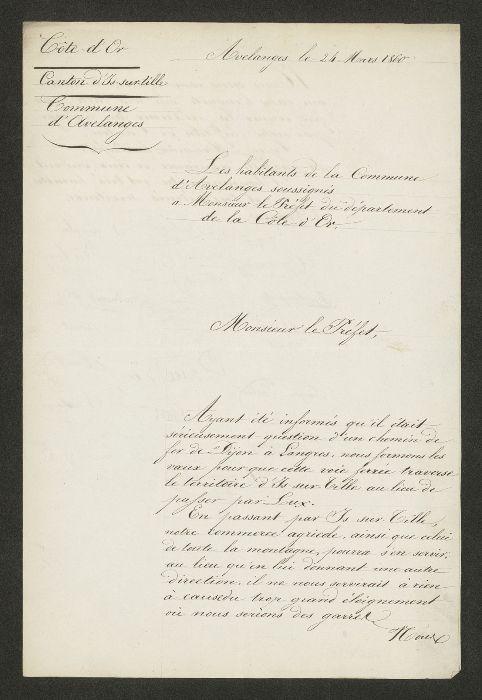 Côte d'Or
Canton d'Is-sur-tille
Commune
d'Avelanges
Avelanges le 24 Mars 1860
Les habitants de la Commune
d'Avelanges soussignés
a Monsieur le Préfet du département
de la Côte d'Or,
Monsieur le Préfet,
Ayant été informés qu'il était
sérieusement question d'un chemin de
fer de Dijon à Langres, nous formons les
vœux pour que cette voie ferrée traverse
le territoire d'Is sur Tille au lieu de
passer par Lux.
En passant par Is sur Tille,
notre commerce agricole, ainsi que celui
de toute la montagne, pourra s'en servir,
au lieu qu'en lui donnant une autre
direction, il ne nous servirait à rien
à cause du trop grand éloignement
où nous serions des gares.
Nous